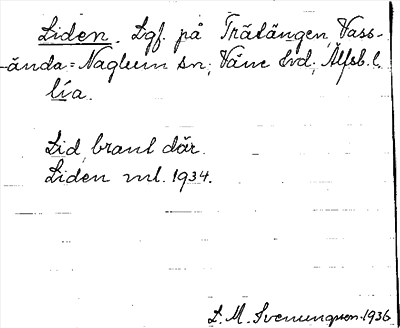 Liden. Lgf. på Trätången, Vass-
ända-Naglum sn; Väne hd; Älfsb. l.
lía.
Lid, brant där.
Liden ml. 1934.
L. M. Svenungsson. 1936.